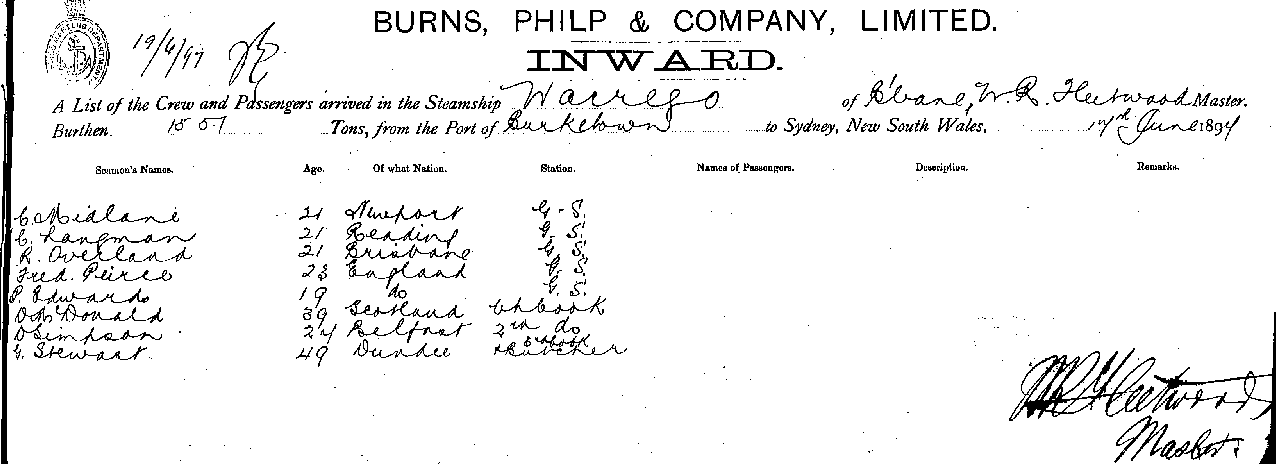 BURNS, PHILP & COMPANY, LIMITED.
19/6/97
INWARD.
A List of the Crew and Passengers arrived in the Steamship Warrego of B'bane, W. R. Fleetwood Master.
Burthen 1551 Tons, from the Port of Burketown to Sydney, New South Wales, June 1897
Seamen's Names. Age. Of what Nation. Station. Names of Passengers. Description. Remarks.
C. Midlane 21 Newport G. S.
C. Langman 21 Reading G. S.
R. Overland 21 Brisbane G. S.
Fred. Peirce 23 England G. S.
P. Edwards 19 do G. S.
D McDonald 39 Scotland Ch Cook
D Simpson 24 Belfast 2nd do
G. Stewart 49 Dundee 3rd Cook & Butcher
W R Fleetwood
Master